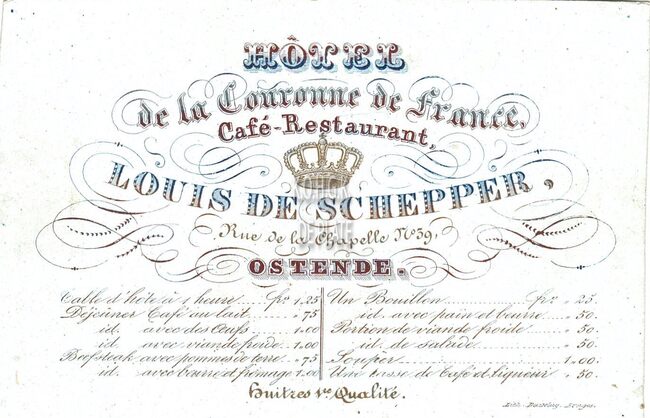 HÔTEL
de la Couronne de France,
Café-Restaurant,
LOUIS DE SCHEPPER,
Rue de la Chapelle No 39,
OSTENDE.
Table d'hôte à 1 heure Frs 1,25
Déjeuner Café au lait „ 75
id. avec des Oeufs 1.00
id. avec viande froide 1.00
Beefsteak avec pommes de terre „ 75
id. avec beurre et fromage 1.00
Un Bouillon Frs „ 25.
id. avec pain et beurre „ 50.
Portion de viande froide „ 50.
id. de salade „ 50.
Souper 1.00.
Une tasse de Café et liqueur „ 50.
Huitres 1re Qualité.
Lith. Bruges.